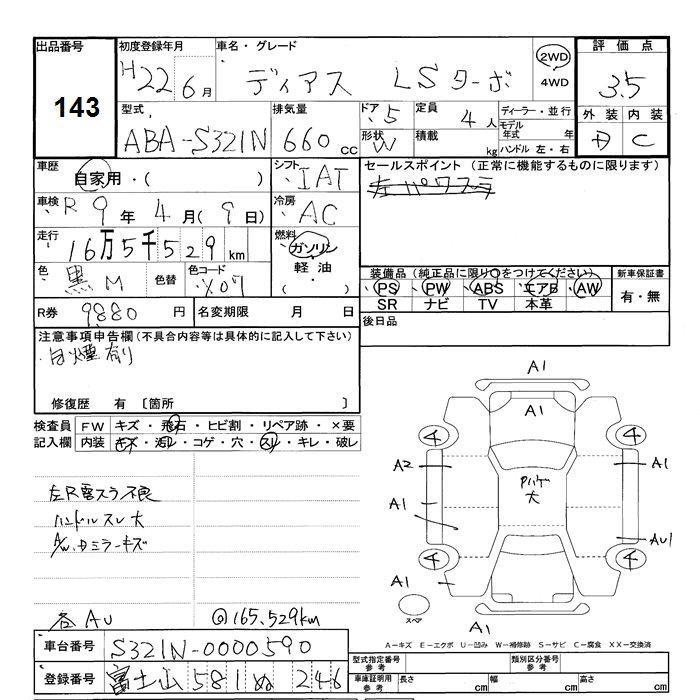 出品番号 143
初度登録年月 H22 6月
車名・グレード ディアス LSターボ
2WD 4WD
評価点 3.5
外装 D 内装 C
型式 ABA-S321N
排気量 660 cc
ドア 5 形状 W
定員 4人 積載 kg
ディーラー・並行
モデル年式 年
ハンドル 左・右
車歴 自家用・( )
シフト IAT
セールスポイント (正常に機能するものに限ります)
左パワスラ
車検 R 9年 4月(9日)
冷房 AC
走行 16万5千529km
燃料 ガソリン 軽油・
色 黒M 色替 色コード X07
装備品(純正品に限り○をつけてください) 新車保証書
・PS・PW・ABS・エアB・AW 有・無
SR ナビ TV 本革
R券 9880円 名変期限 月 日
後日品
注意事項申告欄(不具合内容等は具体的に記入して下さい)
白煙有り
修復歴 有 〔箇所 〕
検査員記入欄 FW キズ・飛石・ヒビ割・リペア跡・×要
内装 キズ・汚レ・コゲ・穴・スレ・キレ・破レ
左R電スラ不良
ハンドルスレ大
A/W.ドミラーキズ
各AU @165.529km
A1
A1
4 4
A2 A1
Pハゲ大
A1
AU1
4 4
A1
スペア
A1
A-キズ E-エクボ U-凹み W-補修跡 S-サビ C-腐食 XX-交換済
車台番号 S321N-0000590
登録番号 富士山 581 ぬ 246
型式指定番号 参考 類別区分番号 参考
車庫証明用 参考 長さ cm 幅 cm 高さ cm